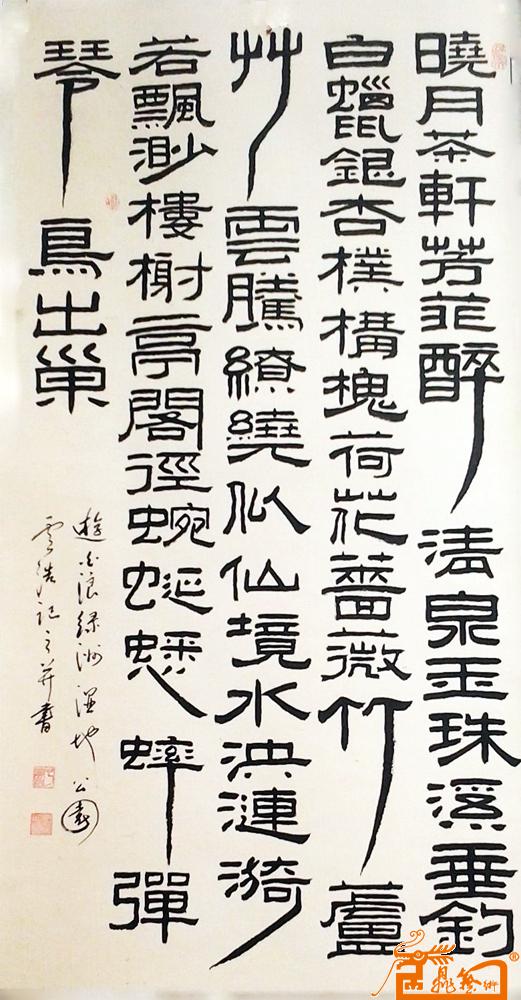 曉月茶軒芳菲醉清泉玉珠溪垂釣
白蠟銀杏樸構槐荷花薔薇竹蘆
艸雲騰繚繞似仙境水泱漣漪
若飄渺樓榭亭閣徑蜿蜒蟋蟀彈
琴鳥出巢
遊金浪綠洲濕地公園
雲浩記之并書